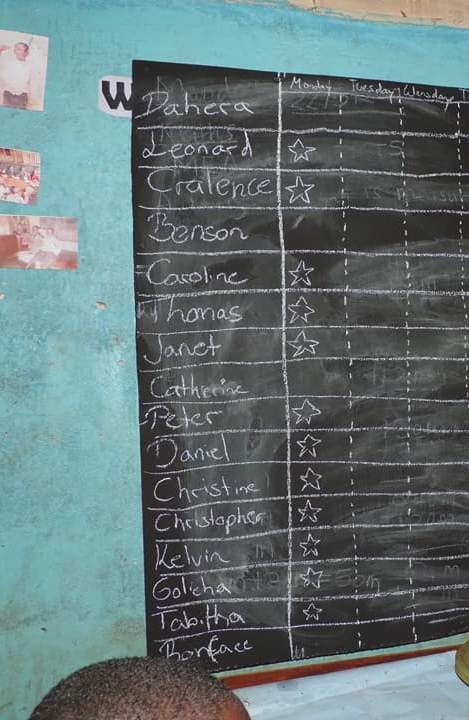 W
Monday Tuesday Wensday T
Dahera
Leonard
Cralence
Benson
Caroline
Thomas
Janet
Catherine
Peter
Daniel
Christine
Christopher
Kelvin
Golicha
Tabitha
Boniface